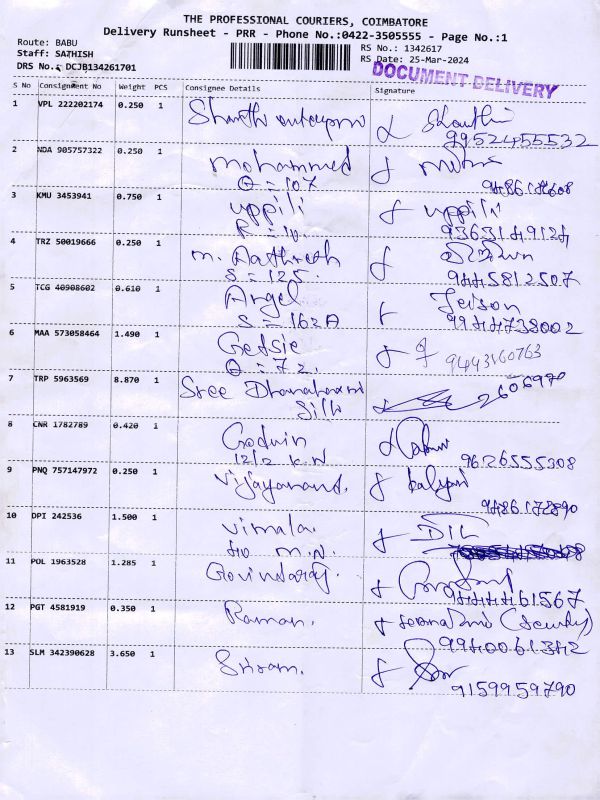 THE PROFESSIONAL COURIERS, COIMBATORE
Delivery Runsheet - PRR - Phone No.:0422-3505555 - Page No.:1
Route: BABU
Staff: SATHISH
DRS No.: DCJB134261701
RS No.: 1342617
RS Date: 25-Mar-2024
DOCUMENT DELIVERY
S No Consignment No Weight PCS Consignee Details Signature
1 VPL 222202174 0.250 1 Shanthi
9952455532
2 NDA 905757322 0.250 1 Mohammed
Q = 107
3 KMU 3453941 0.750 1 uppili uppili
9363149124
4 TRZ 50019666 0.250 1 M.
S = 125.
9445812507
5 TCG 40908602 0.610 1 Angel Jeison
S = 162A 9944738002
6 MAA 573058464 1.490 1 Getsie
Q = 72. 9443160763
7 TRP 5963569 8.870 1 Sree 2606970
Silk
8 CNR 1782789 0.420 1 Godwin
12/2 K.N 9626555308
9 PNQ 757147972 0.250 1 Vijayanand. Kalyani
9486172890
10 DPI 242536 1.500 1 Vimala.
M.N.
11 POL 1963528 1.285 1 Govindaraj.
9444461567
12 PGT 4581919 0.350 1 Raman. (Security)
9940061342
13 SLM 342390628 3.650 1 Sriram.
9159959790